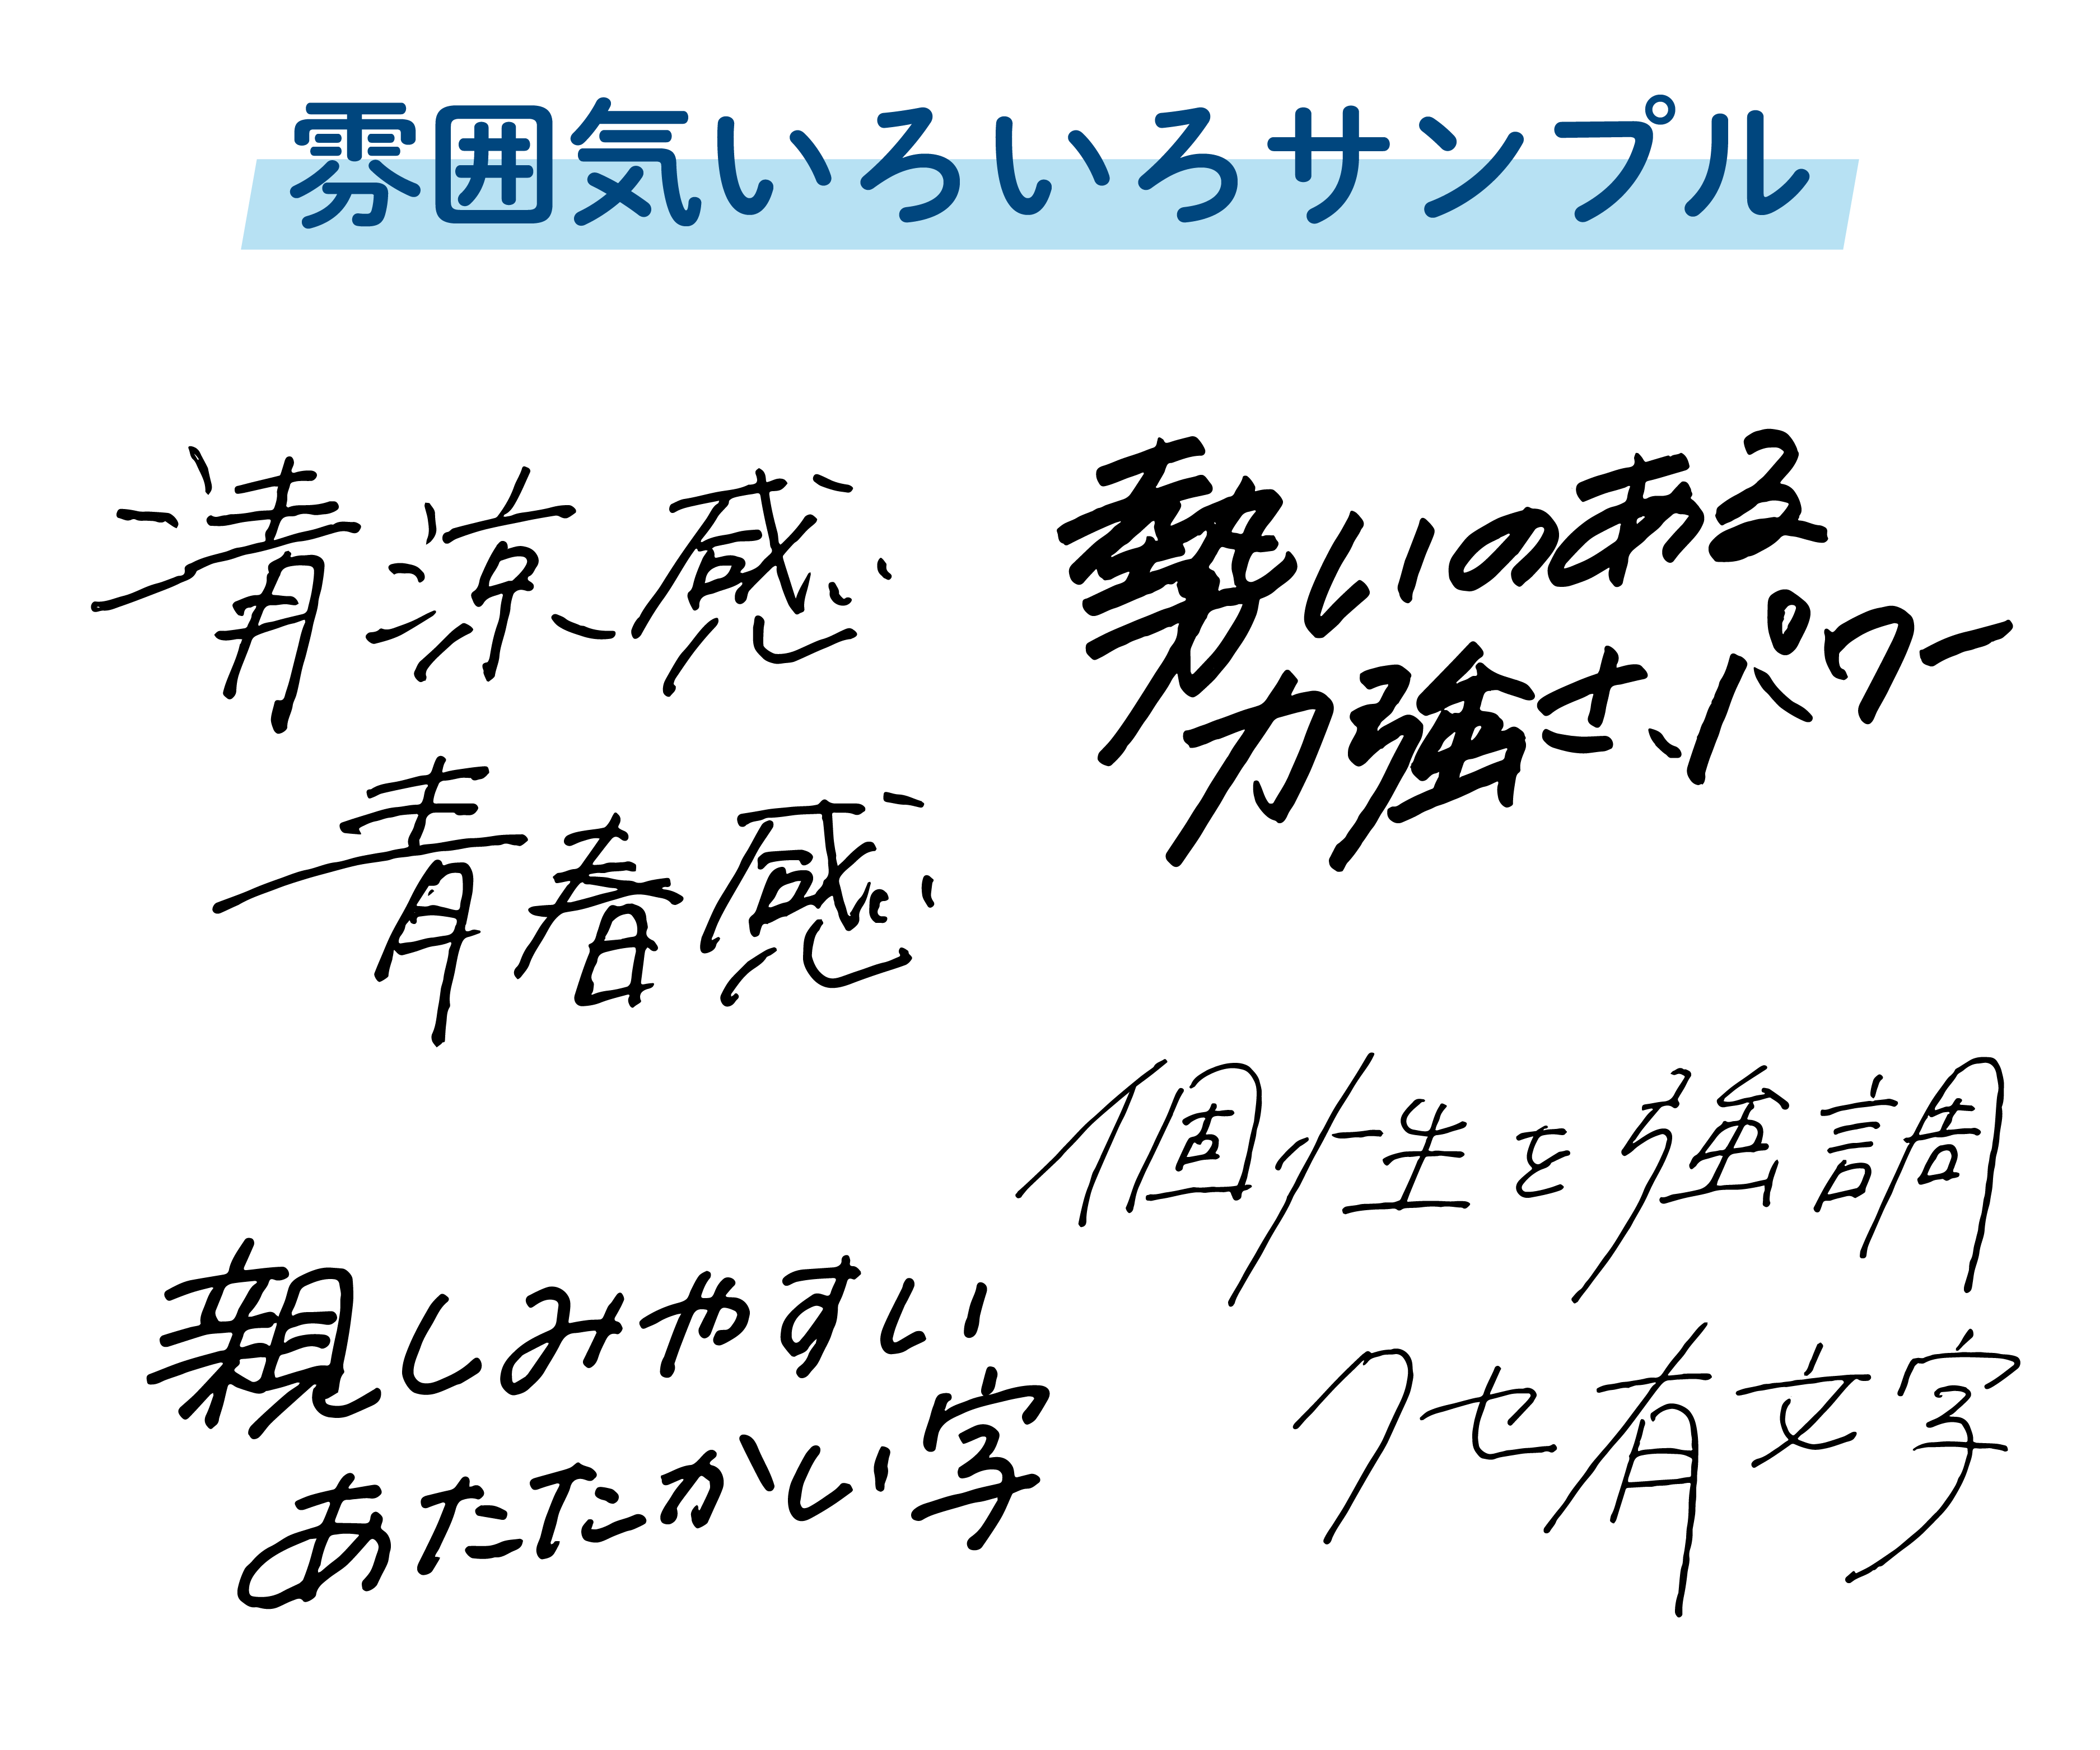 雰囲気いろいろサンプル
清涼感
青春感
勢いのある
力強さ、パワー
個性を強調
クセ有文字
親しみやすい
あたたかい字